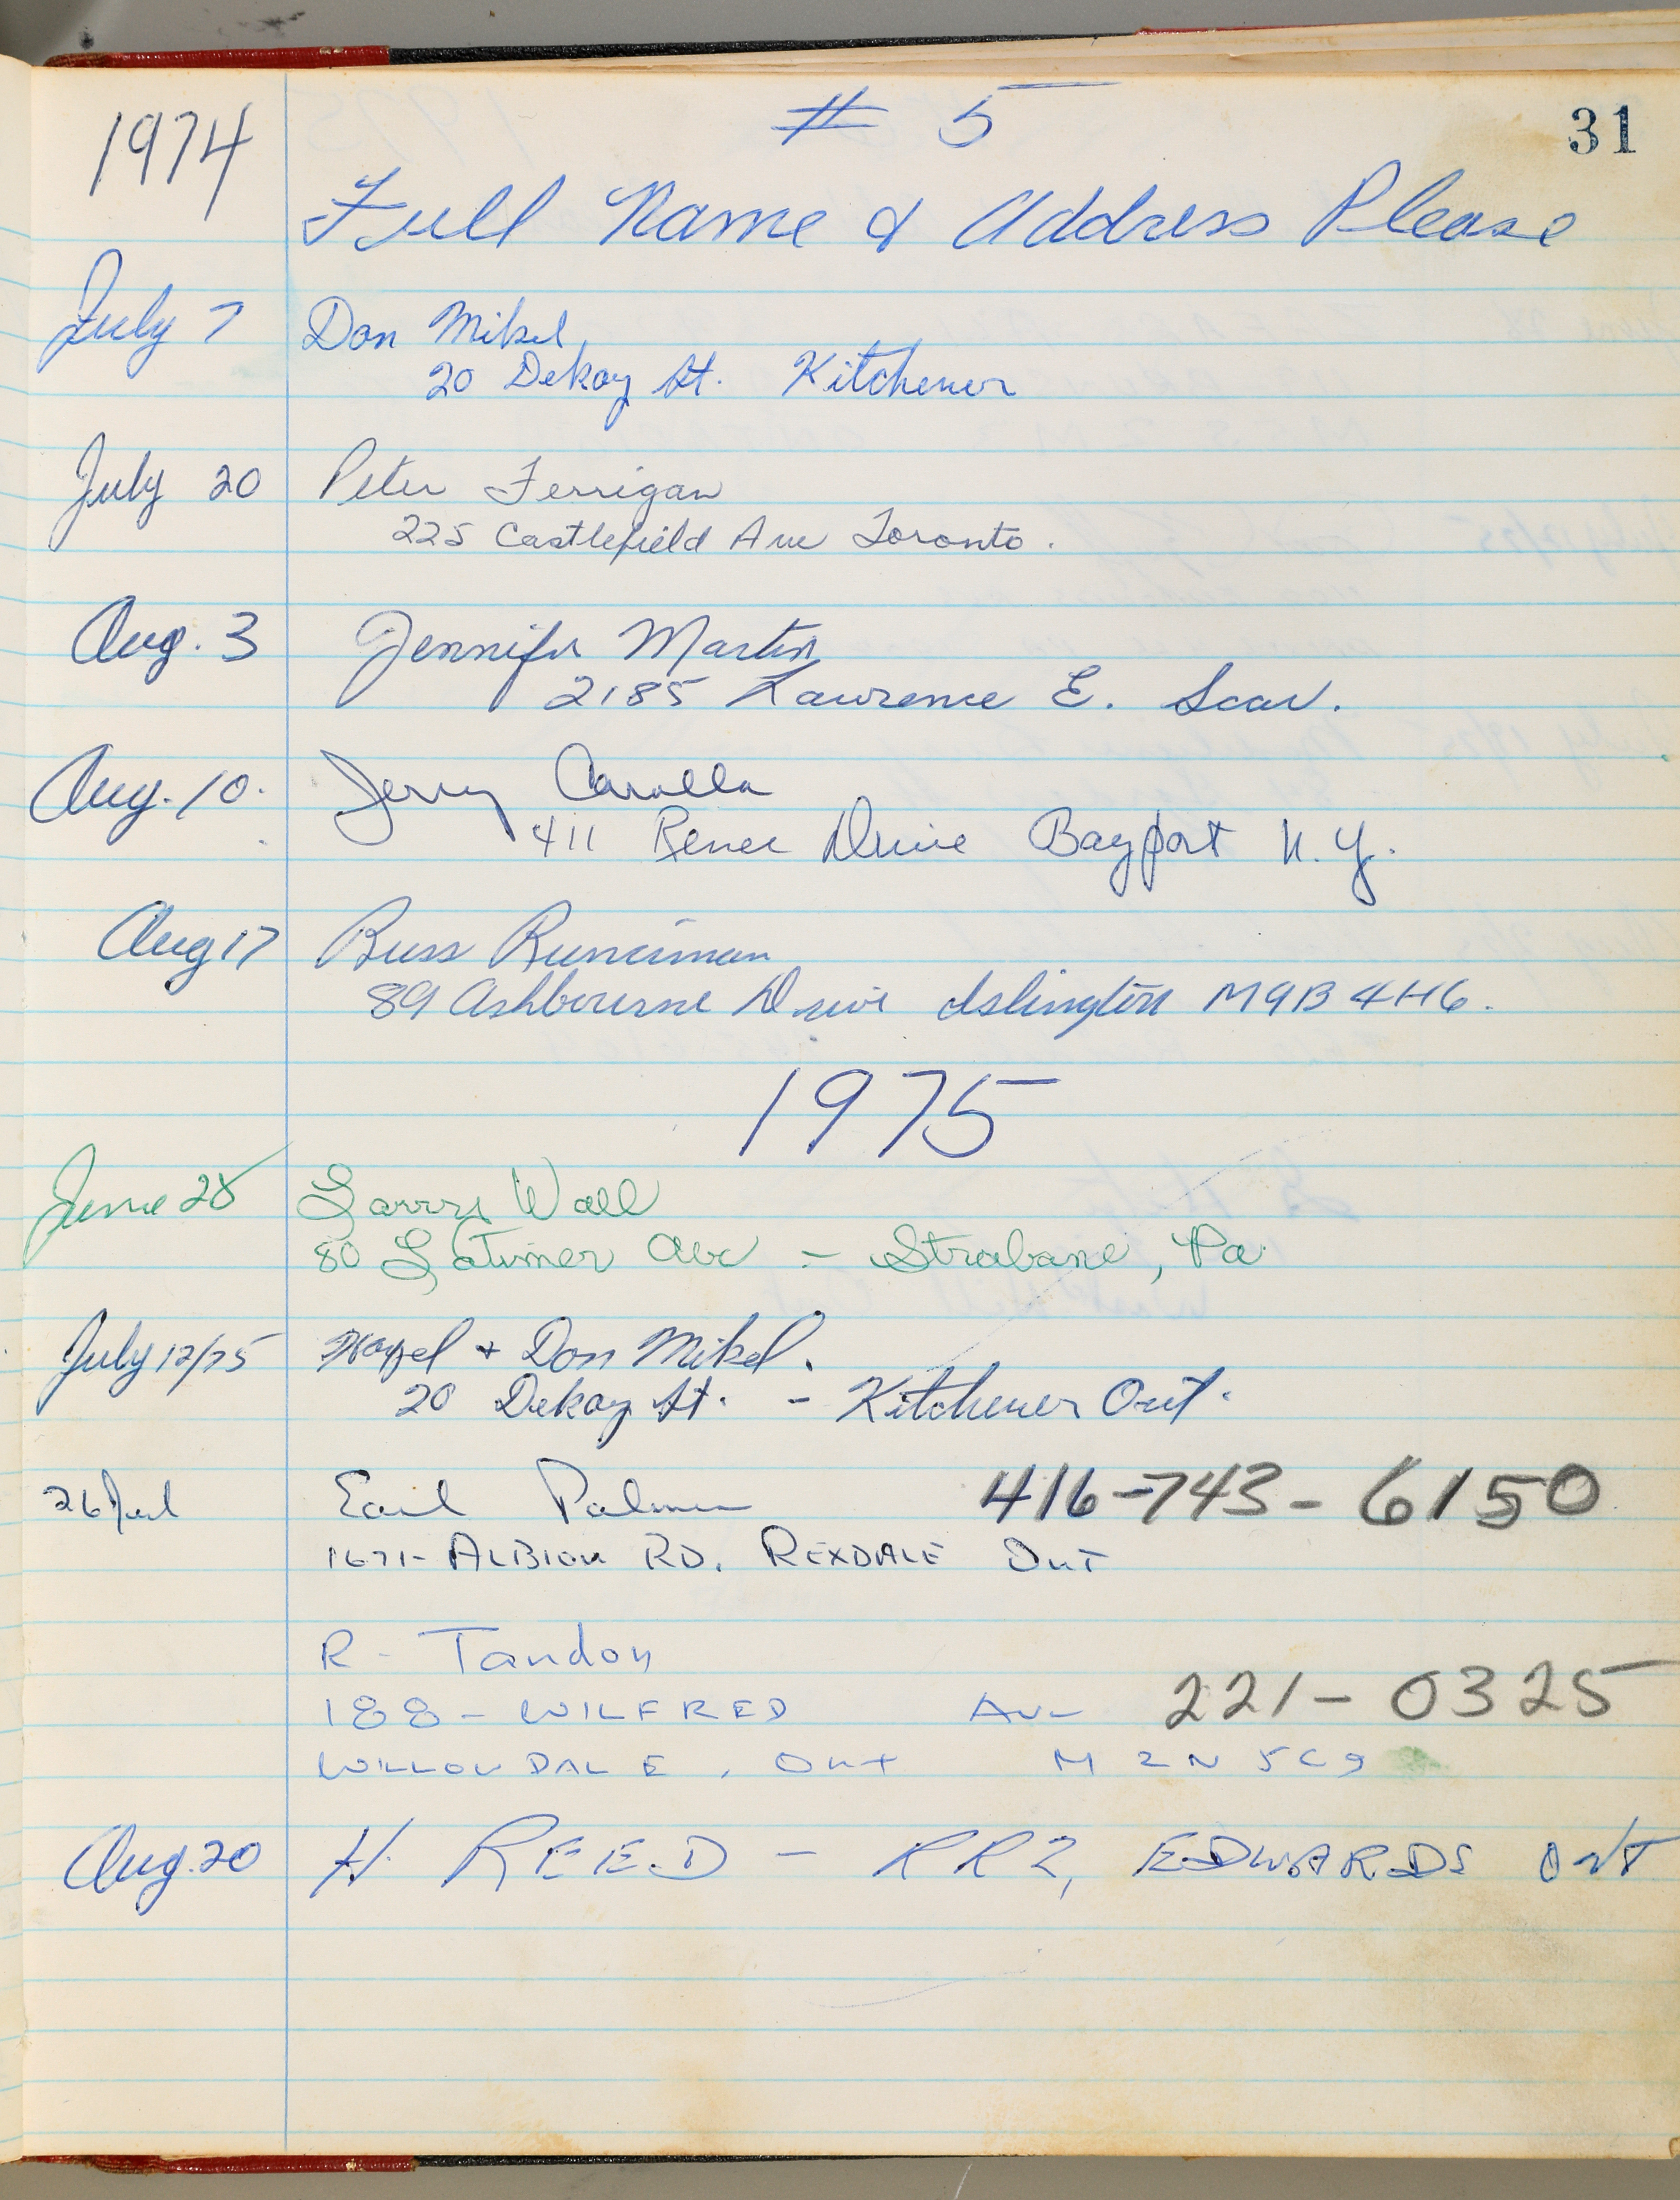 1974 # 5 31
Full Name & Address Please
July 7 Don Mikel
20 Dekay St. Kitchener
July 20 Peter Ferrigan
225 Castlefield Ave Toronto.
Aug. 3 Jennifer Martin
2185 Lawrence E. Scar.
Aug. 10. Jerry
411 Renee Drive Bayport N.Y.
Aug 17 Russ Runciman
89 Ashbourne Drive Islington M9B 4H6.
1975
June 28 Larry Wall
80 Latimer Ave - Strabane, Pa
July 12/75 Hazel + Don Mikel.
20 Dekay St. - Kitchener Ont.
26 Jul Earl Palmer 416-743-6150
1671- ALBION RD. REXDALE Ont
R- Tandon
188- WILFRED Ave 221-0325
WILLOWDALE, Ont M2N 5C9
Aug. 20 H. REED - RR2, EDWARDS Ont